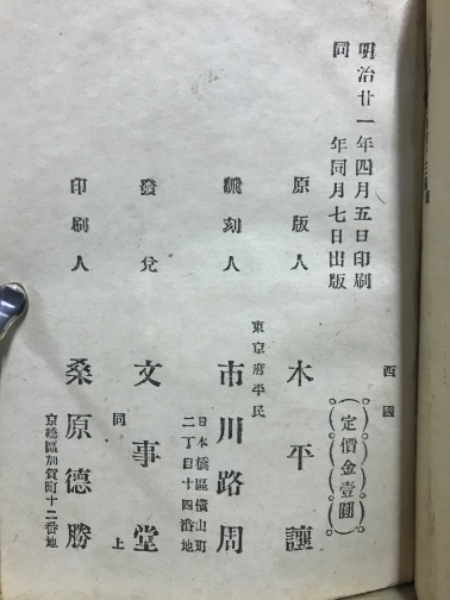 明治廿一年四月五日印刷
同年同月七日出版
西國
定價金壹圓
原版人 木平讓
東京府平民
飜刻人 市川路周
日本橋區横山町
二丁目十四番地
發兌 文事堂
同上
印刷人 桑原德勝
京橋區加賀町十二番地